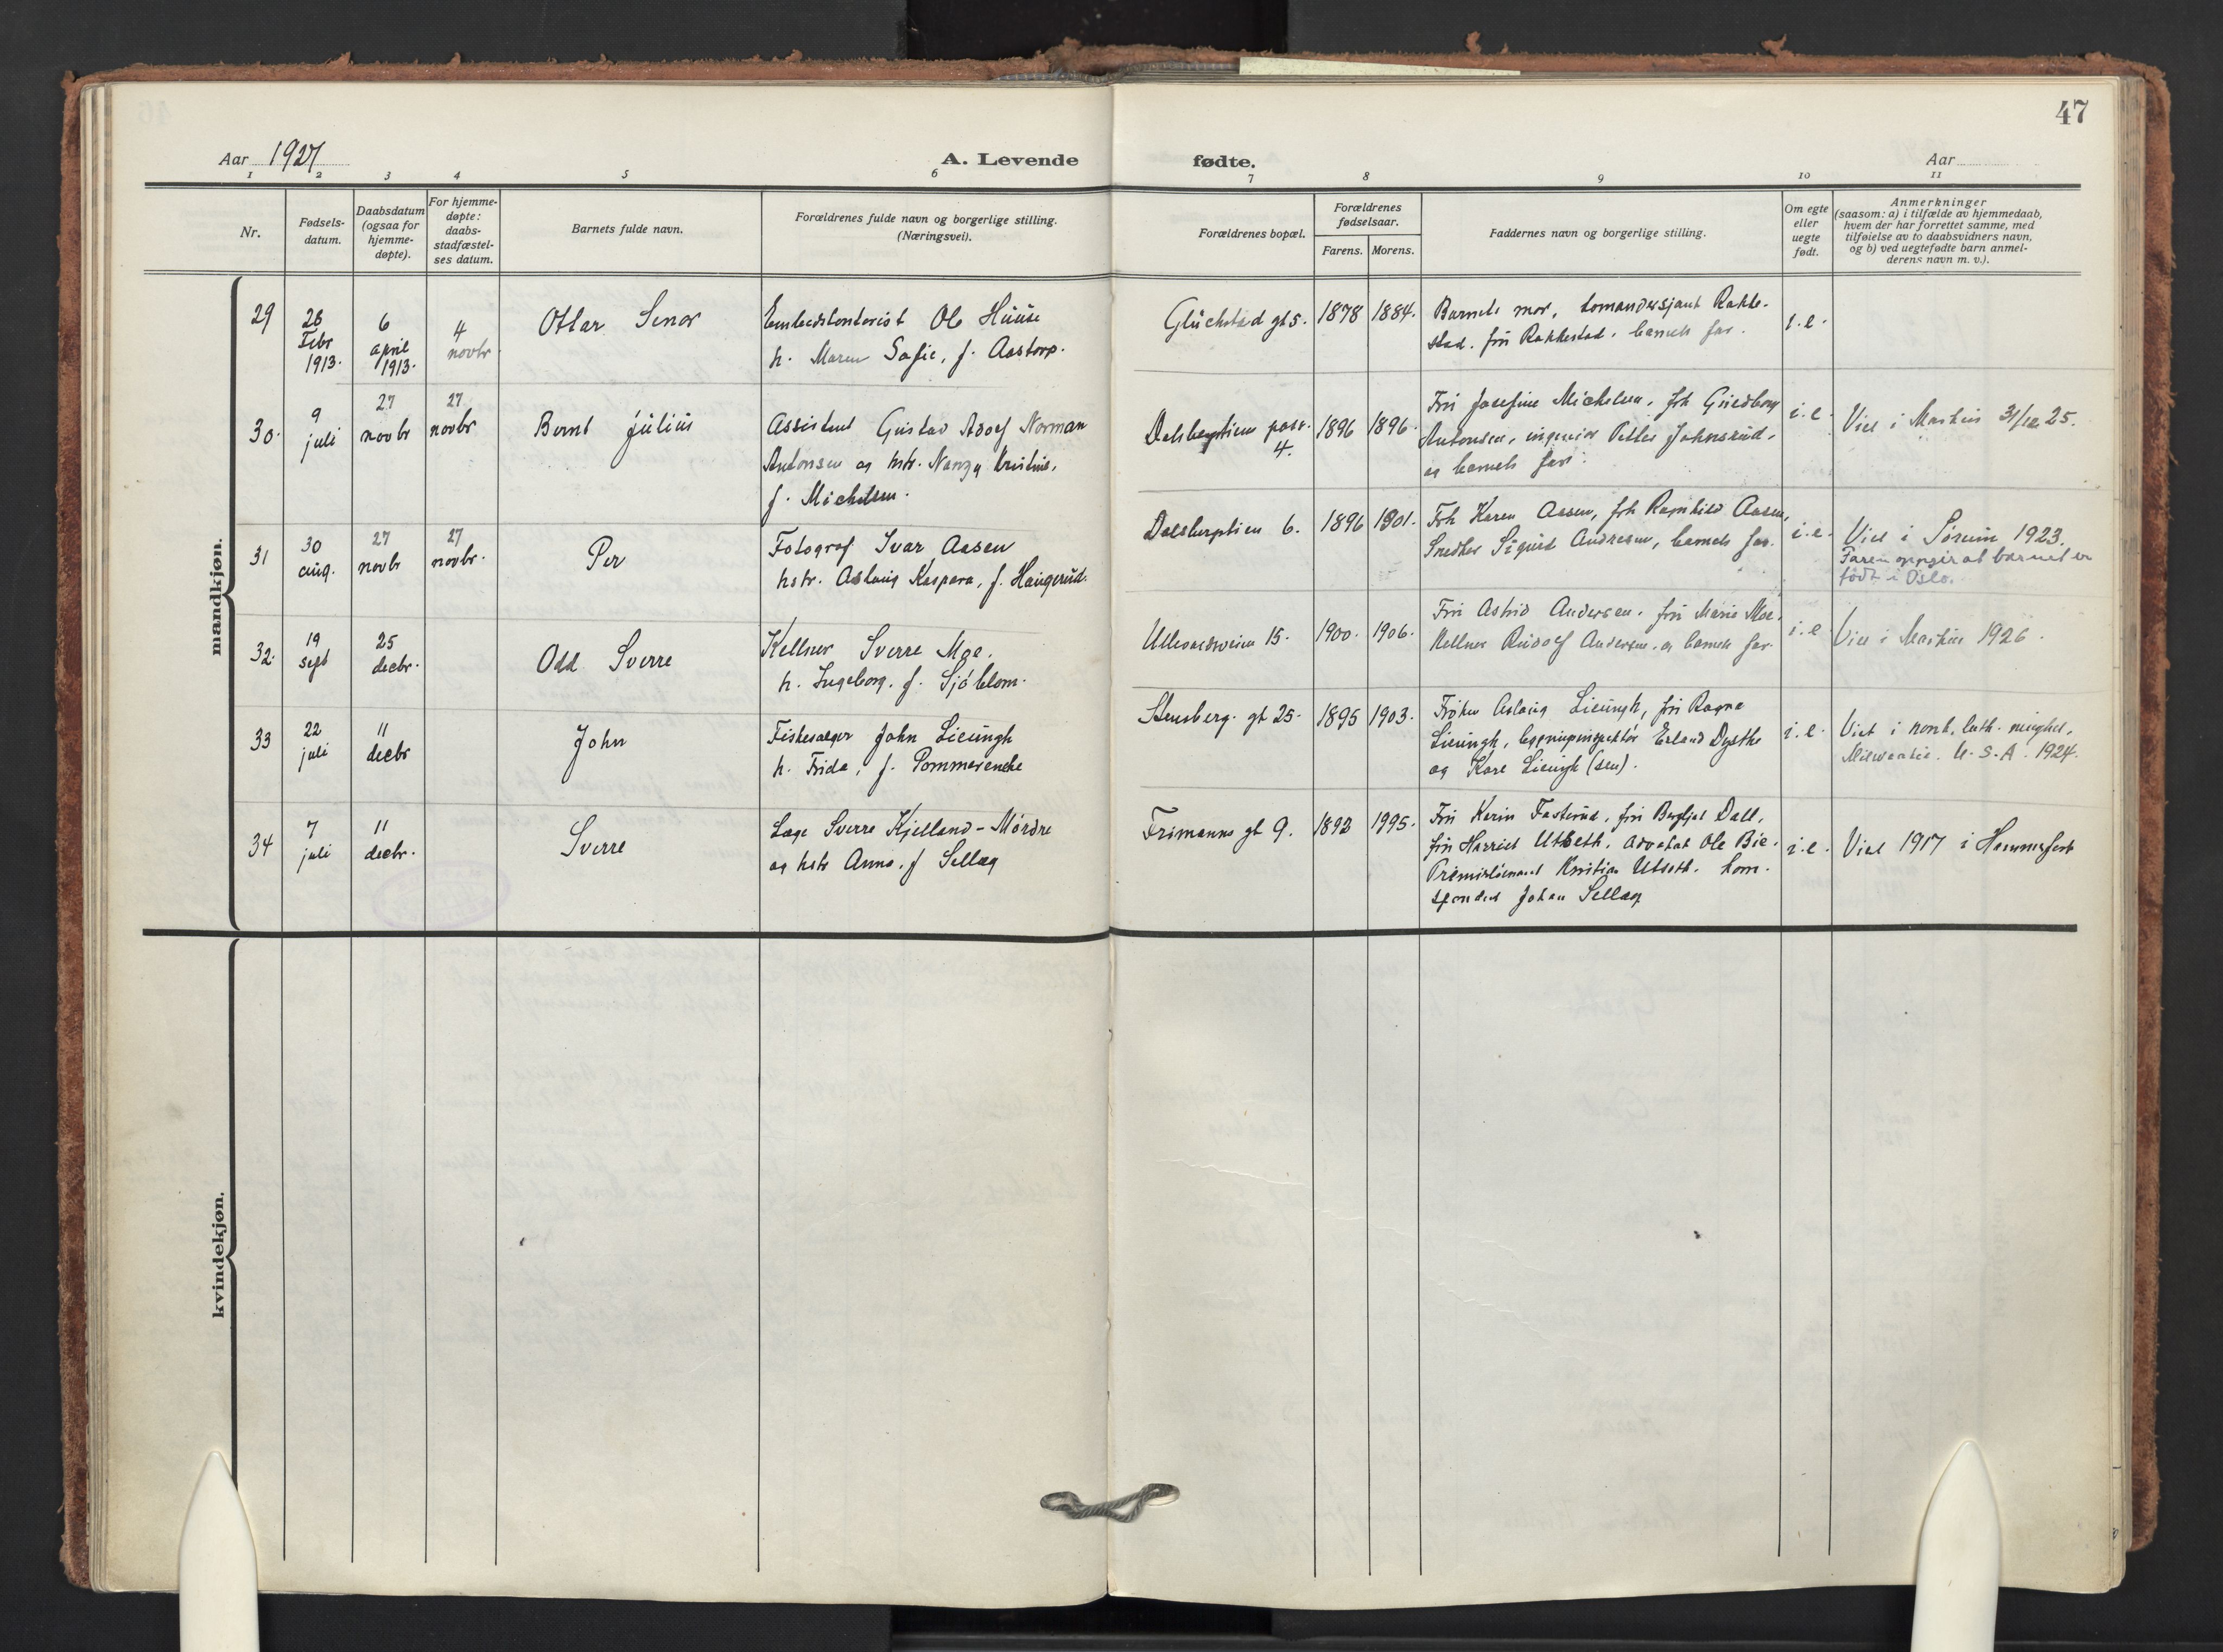 47
Aar 1927
A. Levende fødte.
Aar
1 2 3 4 5 6 7 8 9 10 11
Nr.
Fødsels-
datum.
Daabsdatum
(ogsaa for
hjemme-
døpte).
For hjemme-
døpte:
daabs-
stadfæstel-
ses datum.
Barnets fulde navn.
Forældrenes fulde navn og borgerlige stilling.
(Næringsvei).
Forældrenes bopæl.
Forældrenes
fødselsaar.
Farens. Morens.
Faddernes navn og borgerlige stilling.
Om egte
eller
uegte
født.
Anmerkninger
(saasom: a) i tilfælde av hjemmedaab,
hvem der har forrettet samme, med
tilføielse av to daabsvidners navn,
og b) ved uegtefødte barn anmel-
derens navn m. v.).
mandkjøn.
29
28
Febr
1913.
6
april
1913.
4
novbr
Ottar
Ole Huuse
h. Maren Sofie, f. Aastorp.
Glückstad gt 5.
1878
1884.
Barnets mor,
stad. fru Rakkestad. barnets far.
i.e.
30.
9
juli
27
novbr
27
novbr
Bernt Julius
Assistent Gustav Adolf Norman
Antonsen og hstr. Kristine,
f. Michelsen.
4.
1896
1896.
Fru Josefine Michelsen, frk
Antonsen, ingeniør Petter Johnsrud,
og barnets far.
i.e.
Viet i Markus 31/12 25.
31
30
aug.
27
novbr
27
novbr.
Per
Fotograf Ivar Aasen
hstr. Aslaug Kaspara, f. Haugerud.
Dalsbergstien 6.
1896
1901.
Frk Karen Aasen, frk Ragnhild Aasen,
Snedker Sigurd Andresen, barnets far.
i.e.
Viet i Sørum 1923.
Faren oppgir at barnet er
født i Oslo.
32.
19
sept
25
decbr.
Odd Sverre
Kellner Sverre Moe.
h. Ingeborg. f. Sjöblom.
Ullevaldsveien 15.
1900.
1906.
Fru Astrid Andersen. fru Marie Moe.
Kellner Rudolf Andersen. og barnets far.
i.e.
Viet i Markus 1926.
33
22
juli
11
decbr
John
Fiskesælger John Lieungh
h. Frida, f. Pommerencke
Stensberg. gt 25.
1895
1903.
Frøken Aslaug Lieungh, fru Ragna
Lieungh, Erland Dysthe
og Kare Lieungh (sen).
i.e.
Viet i norsk. luth. menighet,
Milwaukee. U.S.A. 1924.
34
7
juli
11
decbr.
Sverre
Læge Sverre Kjelland-Mørdre
og hstr Anna. f Sellæg
Frimanns gt 9.
1892
1995.
Fru Karin Fasterud, fru Bergljot Dall,
fru Harriet Utseth, advokat Ole Bie.
Premierløitnant Kristian Utseth. kore-
spondent Johan Sellæg
i.e.
Viet 1917 i Hammerfest
kvindekjøn.